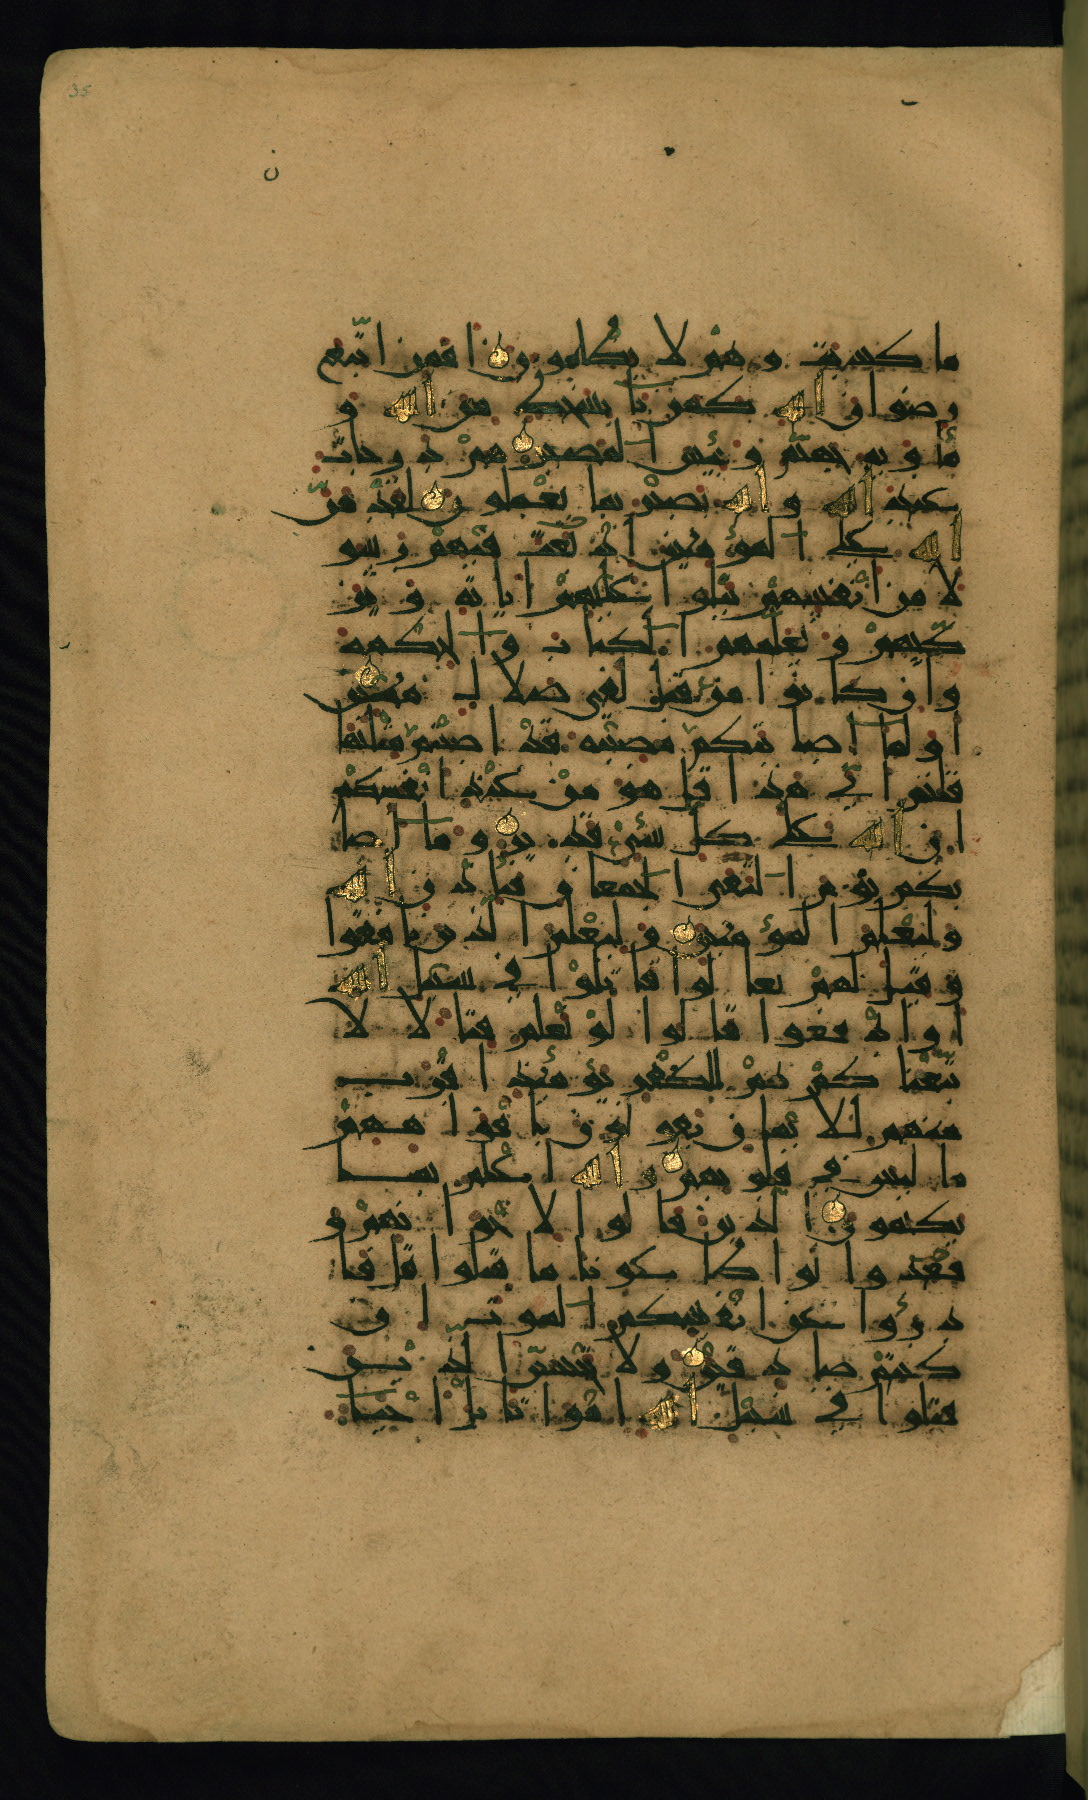 35
ما كسبت وهم لا يظلمون افمن اتبع
رضوان الله كمن با بسخط من الله و
مأويه جهنم وبئس المصير هم درجات
عند الله والله بصير بما يعملون لقد من
الله على المؤمنين اذ بعث فيهم رسو
لا من انفسهم يتلوا عليهم اياته ويز
كيهم ويعلمهم الكتاب والحكمة
وان كانوا من قبل لفى ضلال مبين
اولما اصابتكم مصيبة قد اصبتم مثليها
قلتم انى هذا قل هو من عند انفسكم
ان الله على كل شئ قدير وما اصا
بكم يوم التقى الجمعان فباذن الله
وليعلم المؤمنين وليعلم الذين نافقوا
وقيل لهم تعالوا قاتلوا في سبيل الله
او ادفعوا قالوا لو نعلم قتالا لا
تبعناكم هم للكفر يومئذ اقرب
منهم للايمان يقولون بافواههم
ما ليس في قلوبهم والله اعلم بما
يكتمون الذين قالوا لاخوانهم و
قعدوا لو اطاعونا ما قتلوا قل فا
درؤا عن انفسكم الموت ان
كنتم صادقين ولا تحسبن الذين
قتلوا في سبيل الله امواتا بل احيا